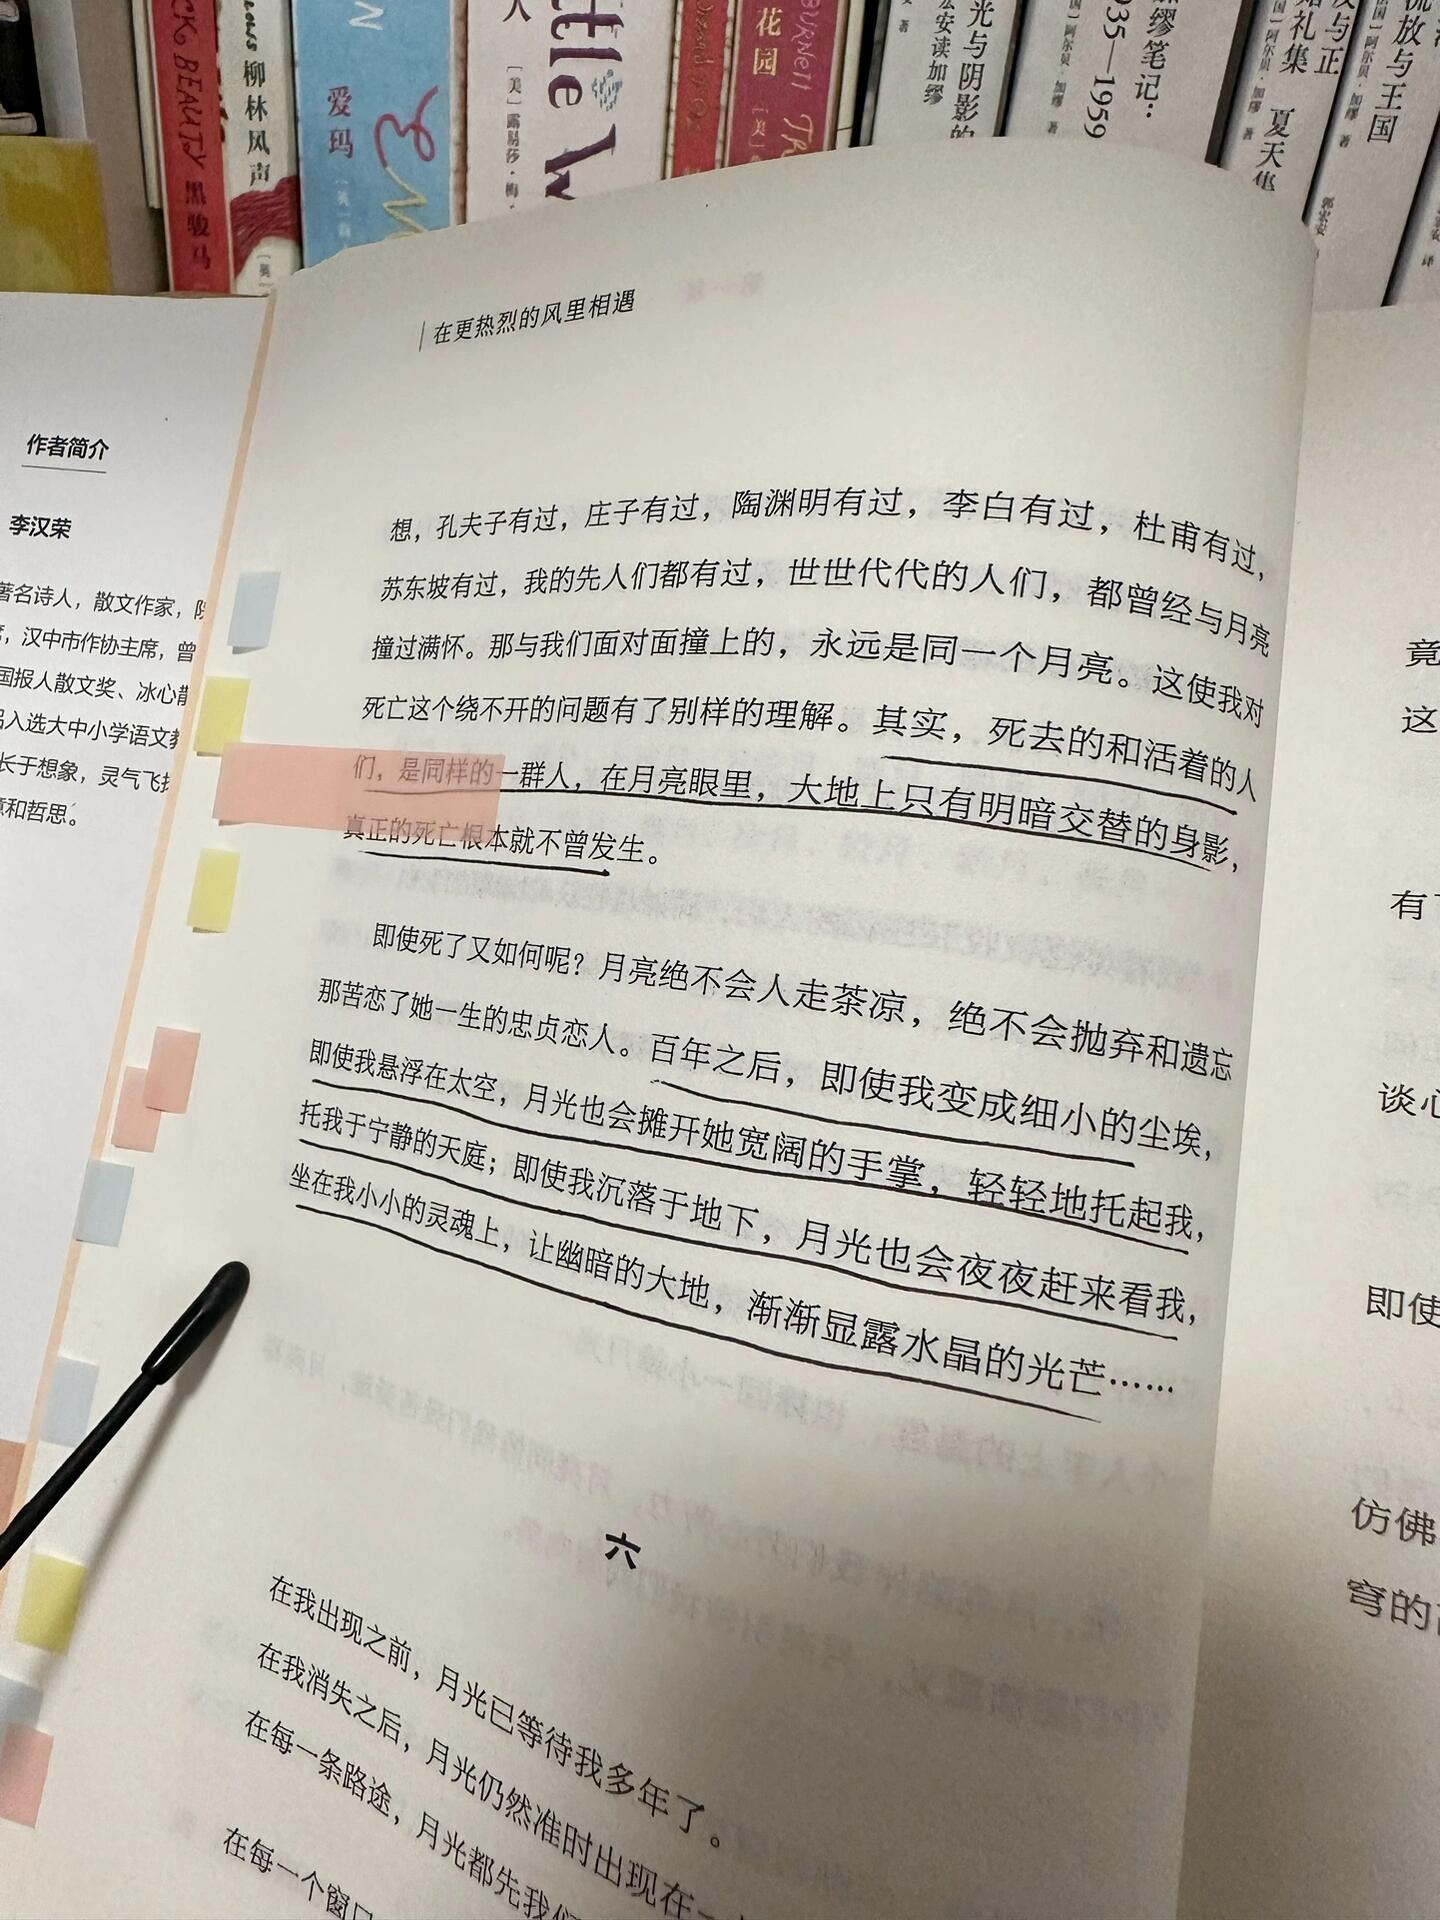 BLACK BEAUTY 黑骏马
柳林风声
爱玛
人
花园
BURNETT
光与阴影的
宏安读加缪
著
加缪笔记：
1935—1959
阿尔贝·加缪 著
婚礼集 夏天集
阿尔贝·加缪 著
流放与王国
阿尔贝·加缪 著
作者简介
李汉荣
著名诗人，散文作家，
，汉中市作协主席，曾
国报人散文奖、冰心散
入选大中小学语文教
长于想象，灵气飞
和哲思。
在更热烈的风里相遇
想，孔夫子有过，庄子有过，陶渊明有过，李白有过，杜甫有过，
苏东坡有过，我的先人们都有过，世世代代的人们，都曾经与月亮
撞过满怀。那与我们面对面撞上的，永远是同一个月亮。这使我对
死亡这个绕不开的问题有了别样的理解。其实，死去的和活着的人
们，是同样的一群人，在月亮眼里，大地上只有明暗交替的身影，
真正的死亡根本就不曾发生。
即使死了又如何呢？月亮绝不会人走茶凉，绝不会抛弃和遗忘
那苦恋了她一生的忠贞恋人。百年之后，即使我变成细小的尘埃，
即使我悬浮在太空，月光也会摊开她宽阔的手掌，轻轻地托起我，
托我于宁静的天庭；即使我沉落于地下，月光也会夜夜赶来看我，
坐在我小小的灵魂上，让幽暗的大地，渐渐显露水晶的光芒……
六
在我出现之前，月光已等待我多年了。
在我消失之后，月光仍然准时出现在
在每一条路途，月光都先我们
在每一个窗口
竟
这
有
谈心
即使
仿佛
穹的